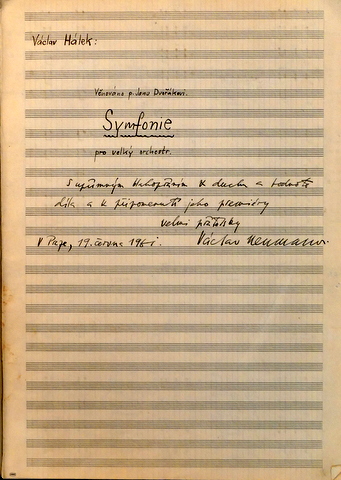 Václav Hálek:
Věnováno p. Janu Dvořákovi.
Symfonie
pro velký orchestr.
S upřímným blahopřáním k duchu a hodnotě
díla a k připomenutí jeho premiéry
velmi přátelsky
V Praze, 19. června 1961. Václav Neumann.